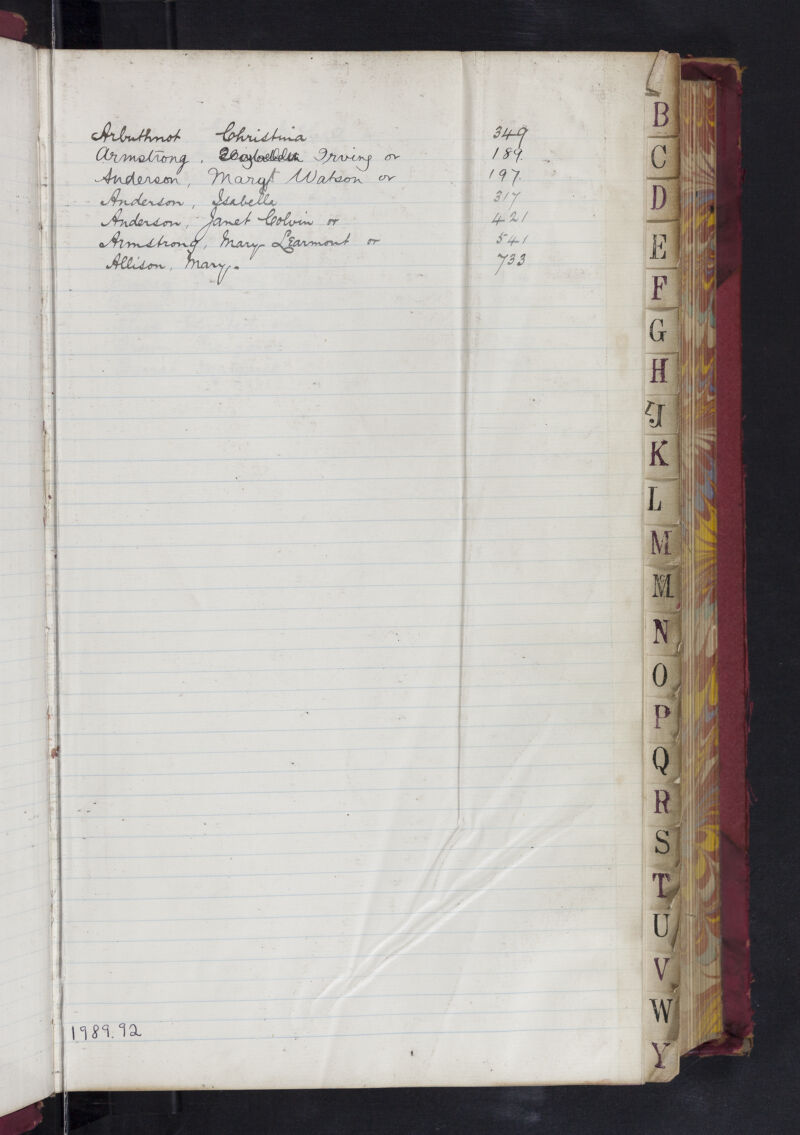 Arbuthnot Christina 349
Armstrong, Irving or 189.
Anderson, Margt Watson or 197.
Anderson, Isabella 317
Anderson, Janet Colvin or 421
Armstrong, Mary Learmont or 541
Allison, Mary. 733
1989.92
B
C
D
E
F
G
H
IJ
K
L
M
Mc
N
O
P
Q
R
S
T
U
V
W
Y